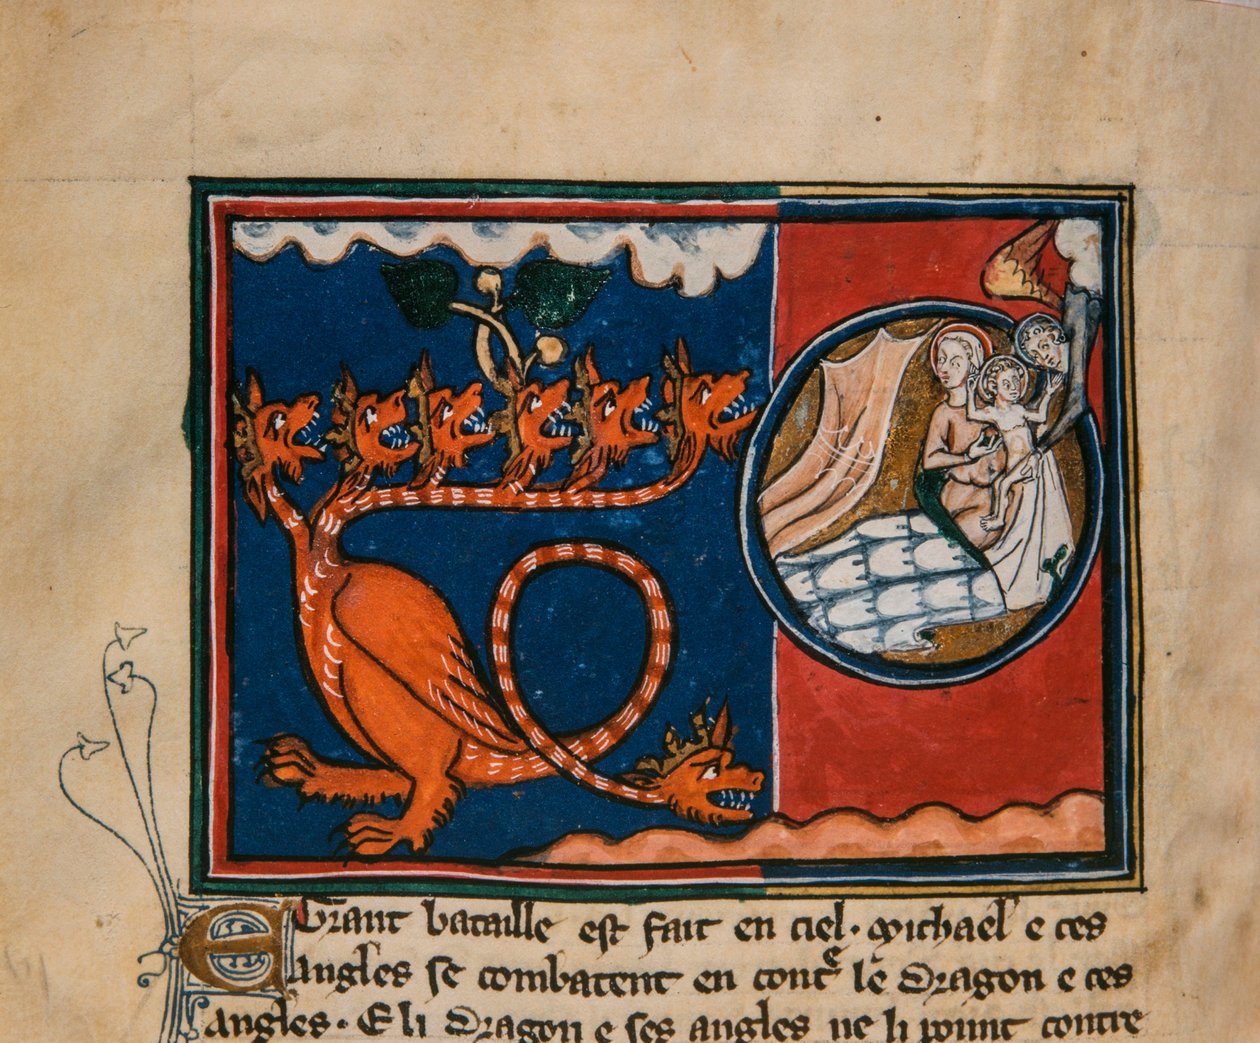 E Grant bataille est fait en ciel· Michael e ces
angles se combatent en contre le Dragon e ces
angles· E li Dragon e ses angles ne li point contre